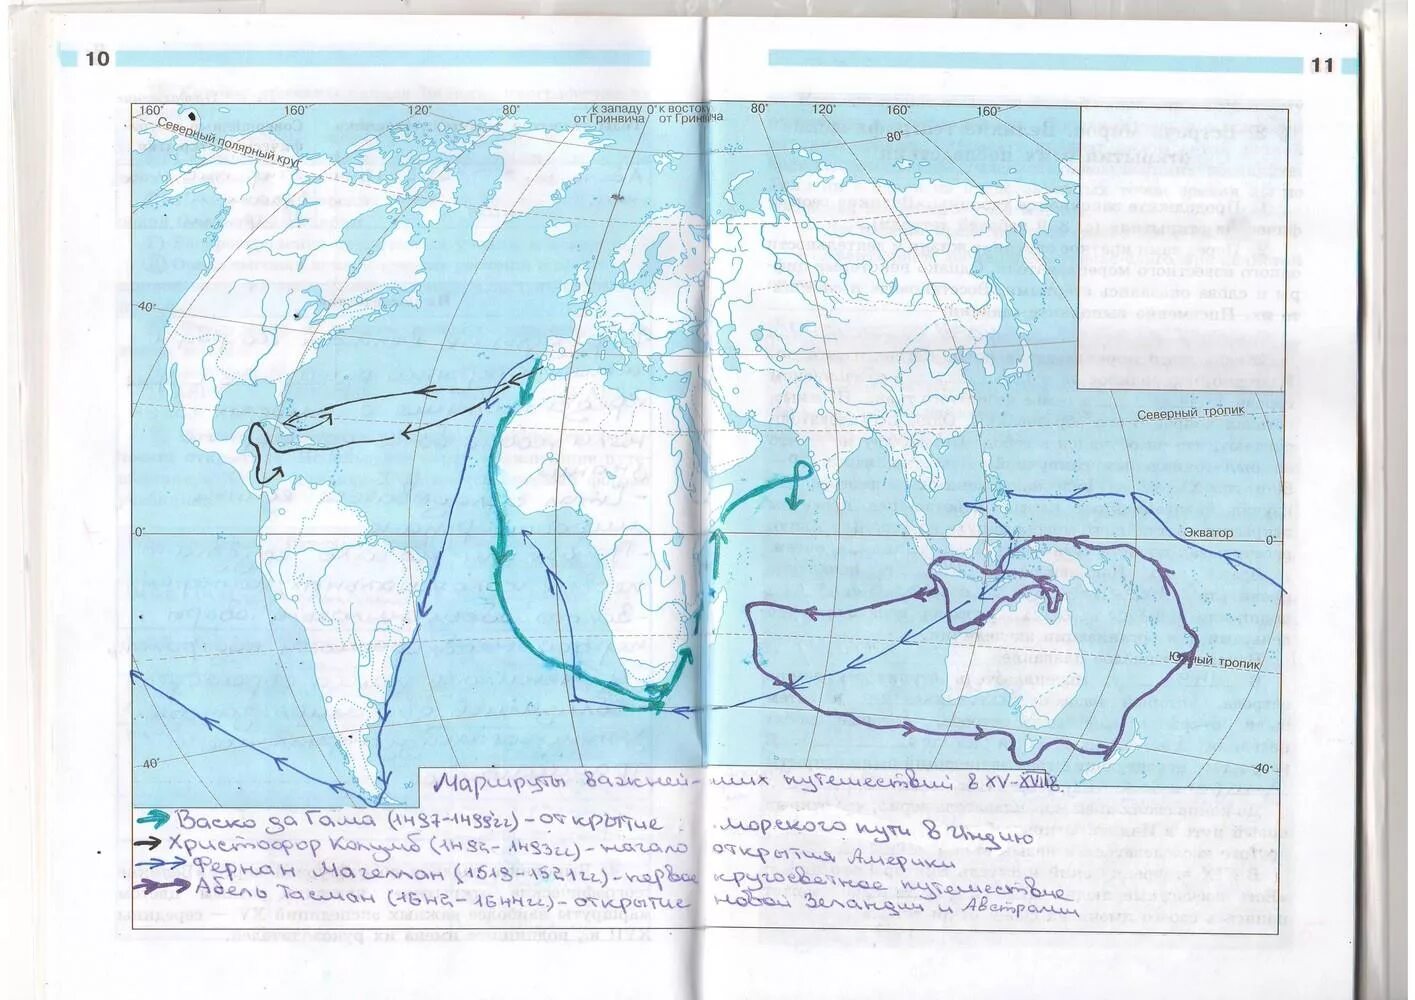 10
11
160° 160° 120° 80° к западу 0° к востоку 80° 120° 160° 160°
от Гринвича от Гринвича
80°
Северный полярный круг
40°
Северный тропик
0° Экватор 0°
Южный тропик
40° 40°
Маршруты важнейших путешествий в XV-XVII в.
Васко да Гама (1497-1498гг) - открытие морского пути в Индию
Христофор Колумб (1492-1493гг) - начало открытия Америки
Фернан Магеллан (1519-1521гг) - первое кругосветное путешествие
Абель Тасман (1642-1644гг) - открытие новой Зеландии и Австралии